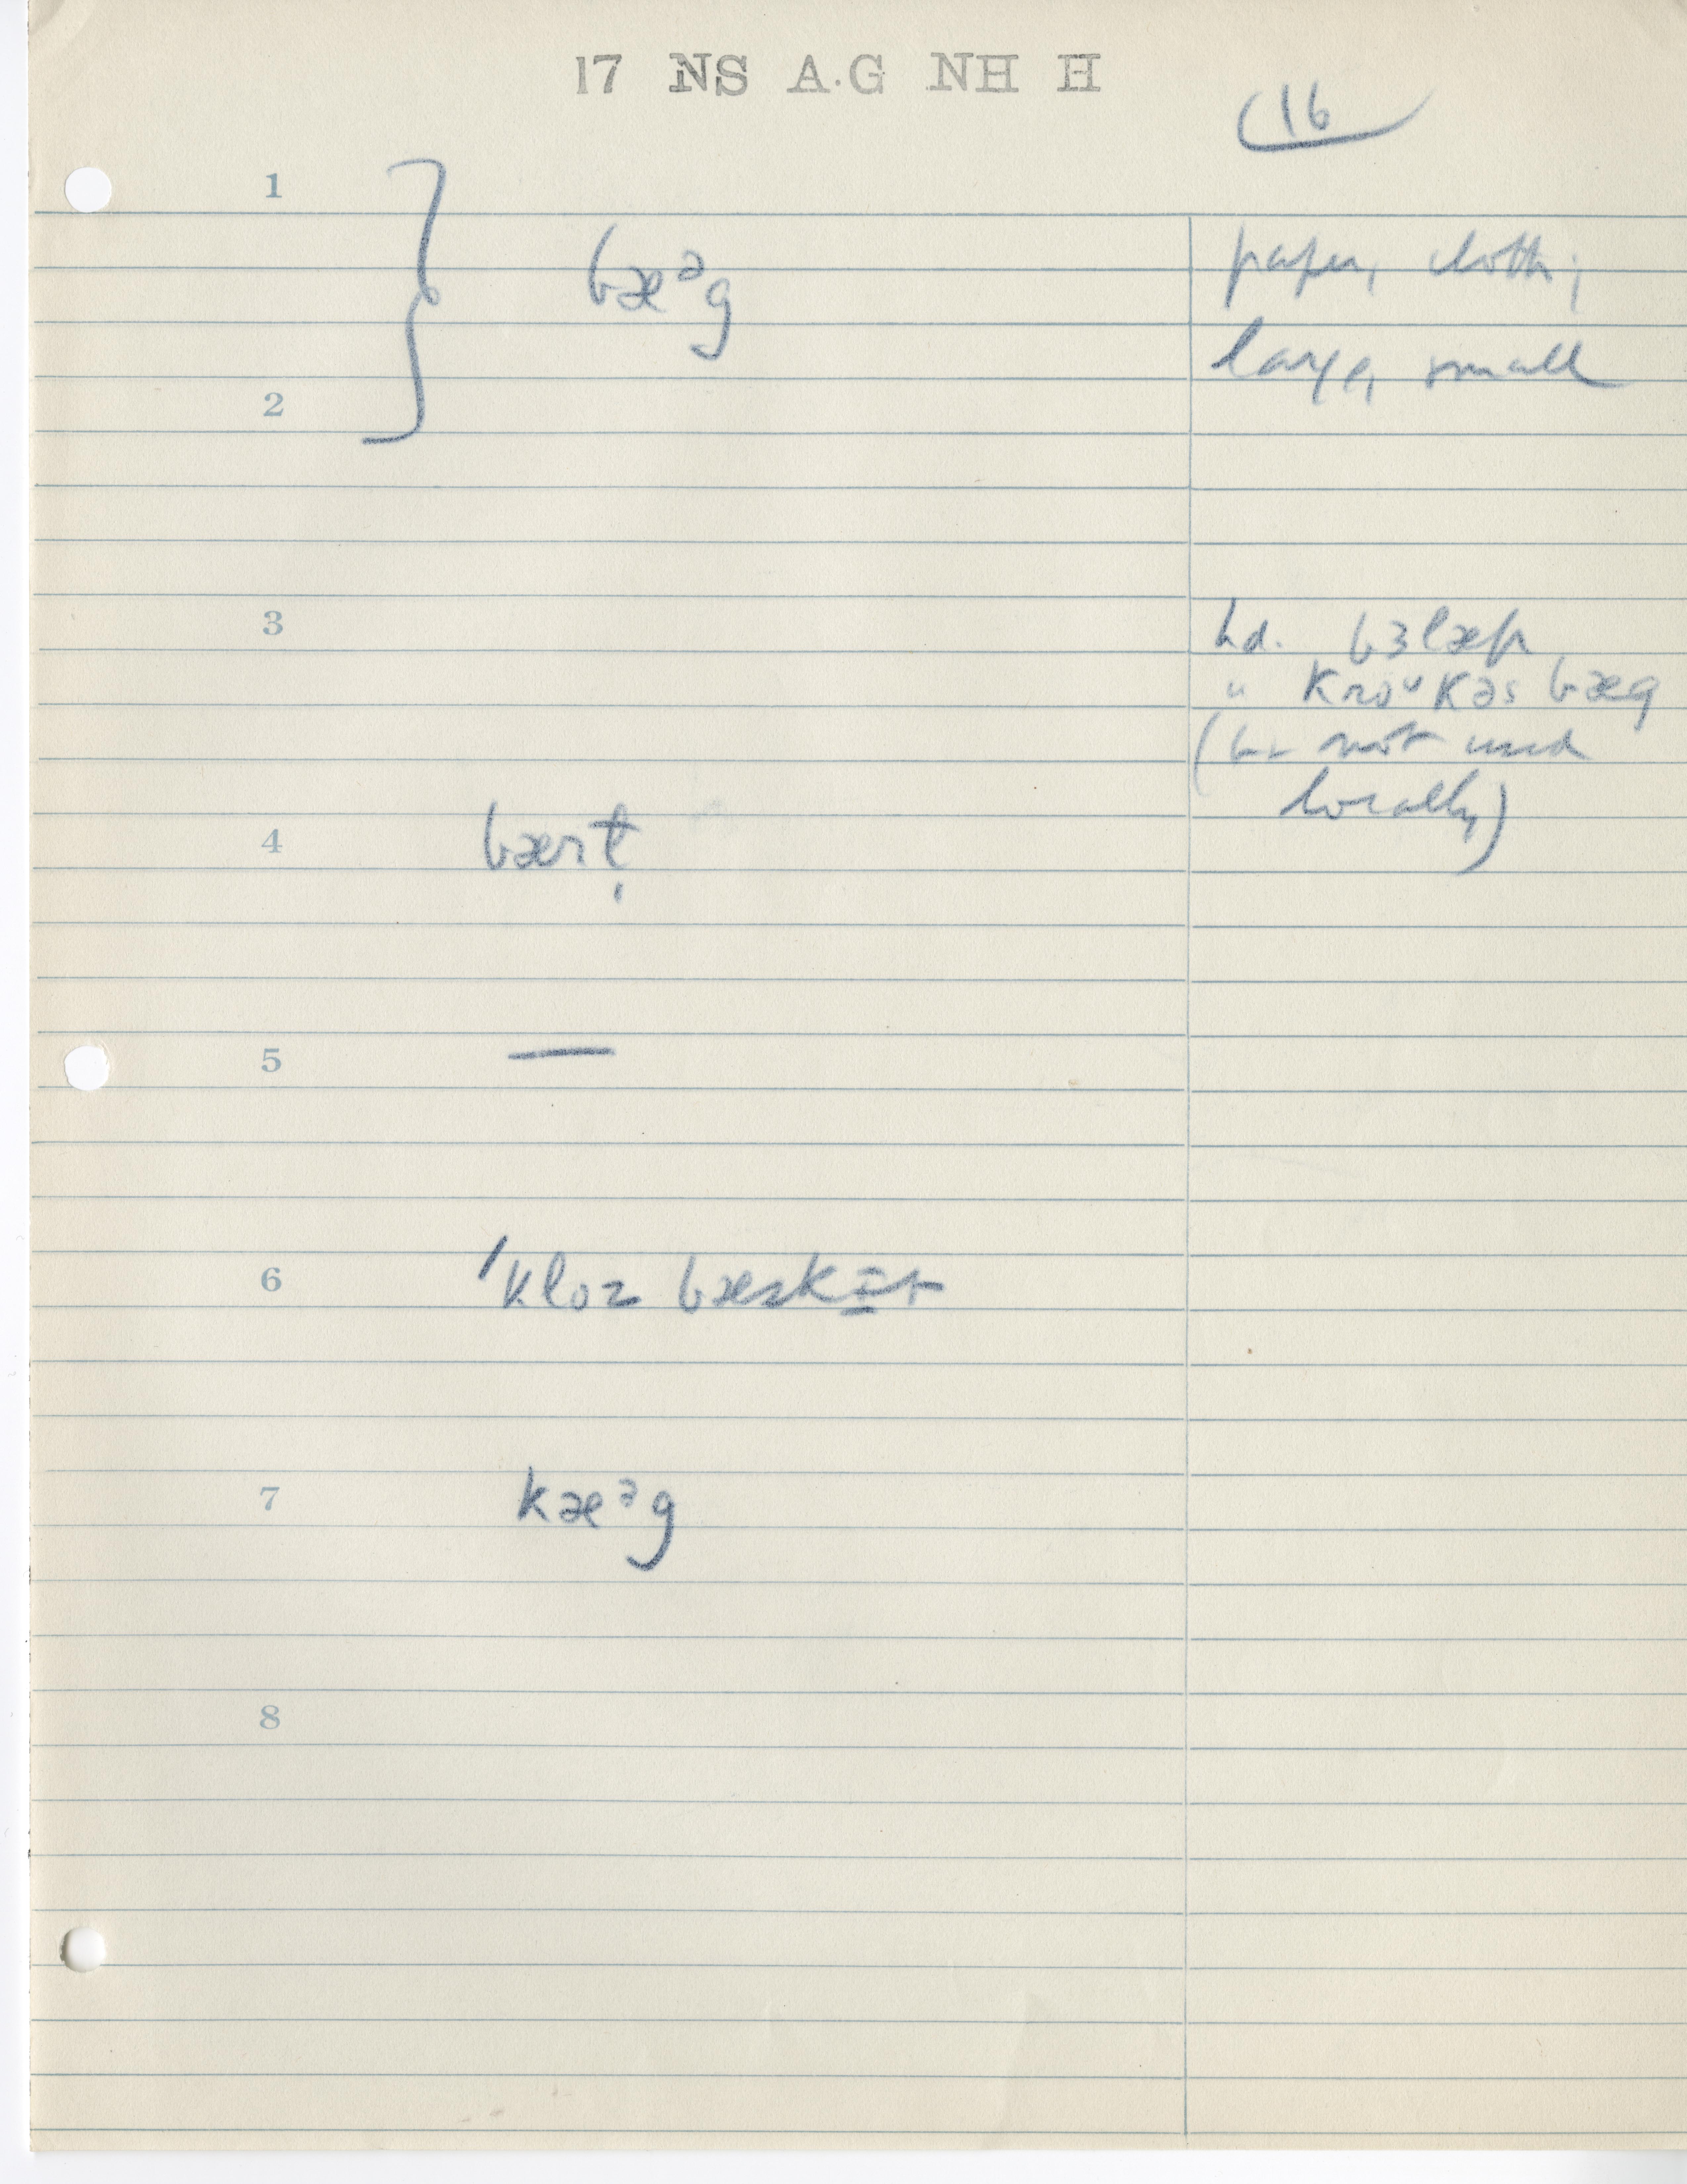 17 NS A.G NH H
16
1
bæᵊg
paper, cloth;
large, small
2
3
hd. bɜlæp
" kroᵘkəs bæg
(bɪ not used
locally)
4
5
—
6
ˈkloz bæskɪt
7
kæᵊg
8